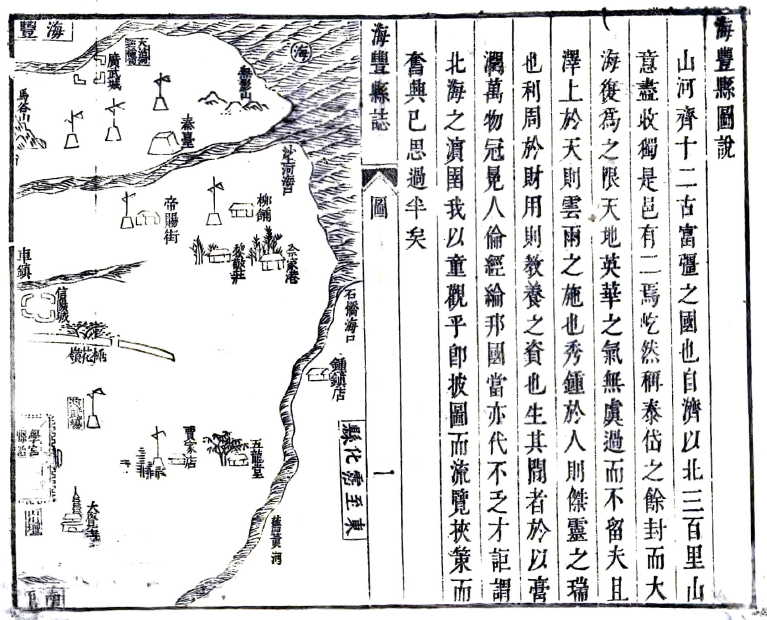 海豐縣圖說
山河齊十二古富彊之國也自濟以北三百里山
意盡收獨是邑有二焉屹然稱泰岱之餘封而大
海復爲之限天地英華之氣無虞過而不留夫且
澤上於天則雲雨之施也秀鍾於人則傑靈之瑞
也利周於財用則教養之資也生其間者於以膏
潤萬物冠冕人倫經綸邦國當亦代不乏才詎謂
北海之濱囿我以童觀乎卽披圖而流覽挾策而
奮興已思過半矣
海豐縣誌
圖
一
海豐
海
廣武城
馬谷山
秦臺
沙河海口
帝賜街
柳鋪
車鎮
信陽城
石橋海口
鍾鎮店
東至霑化縣
學宮
賈家店
五龍堂
舊黃河